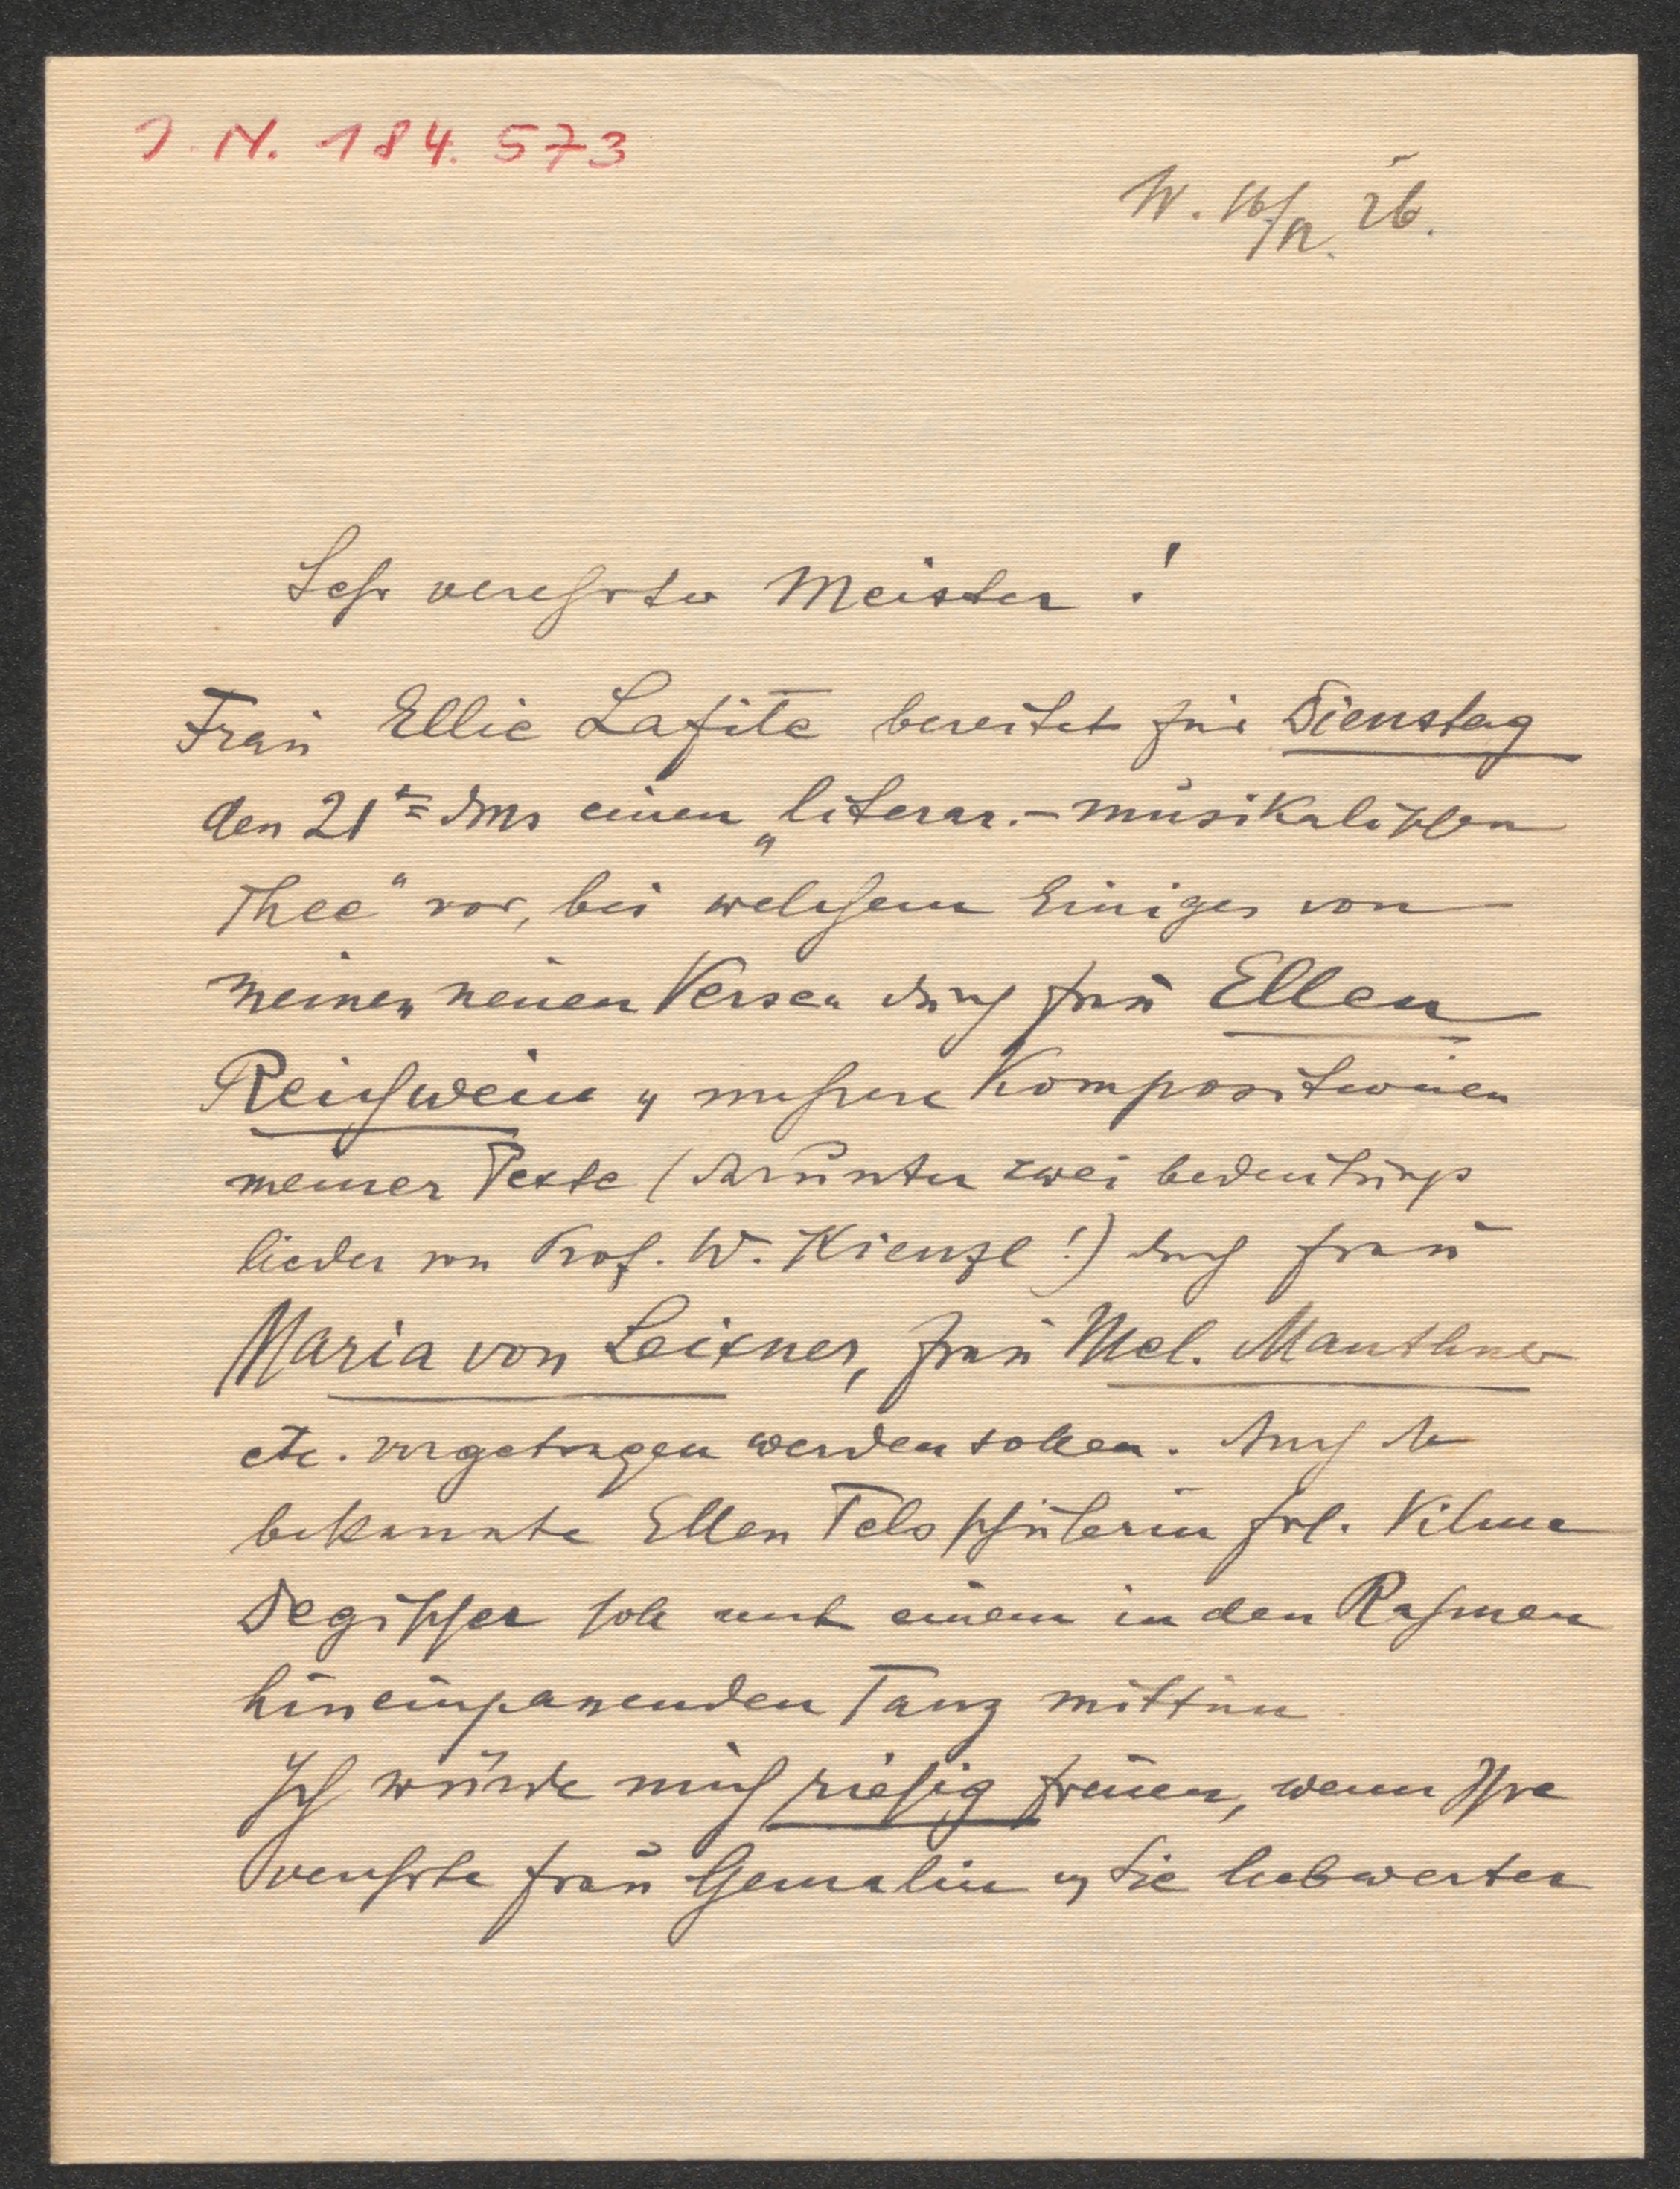 J. N. 184.573
W. 16/12. 26.
Sehr verehrter Meister!
Frau Ellie Lafite bereitet für Dienstag
den 21ten dms einen „literar.-musikalischen
Thee" vor, bei welchem Einiges von
meinen neuen Versen durch Frau Ellen
Reichwein u mehrere Kompositionen
meiner Texte (darunter zwei
lieder von Prof. W. Kienzl!) durch Frau
Maria von Leixner, Frau Mel. Mauthner
etc. vorgetragen werden sollen. Auch die
bekannte Ellen Tels schülerin Frl. Vilma
soll mit einem in den Rahmen
hineinpassenden Tanz mittun
Ich würde mich riesig freuen, wenn Ihre
verehrte Frau Gemalin u Sie liebwerter